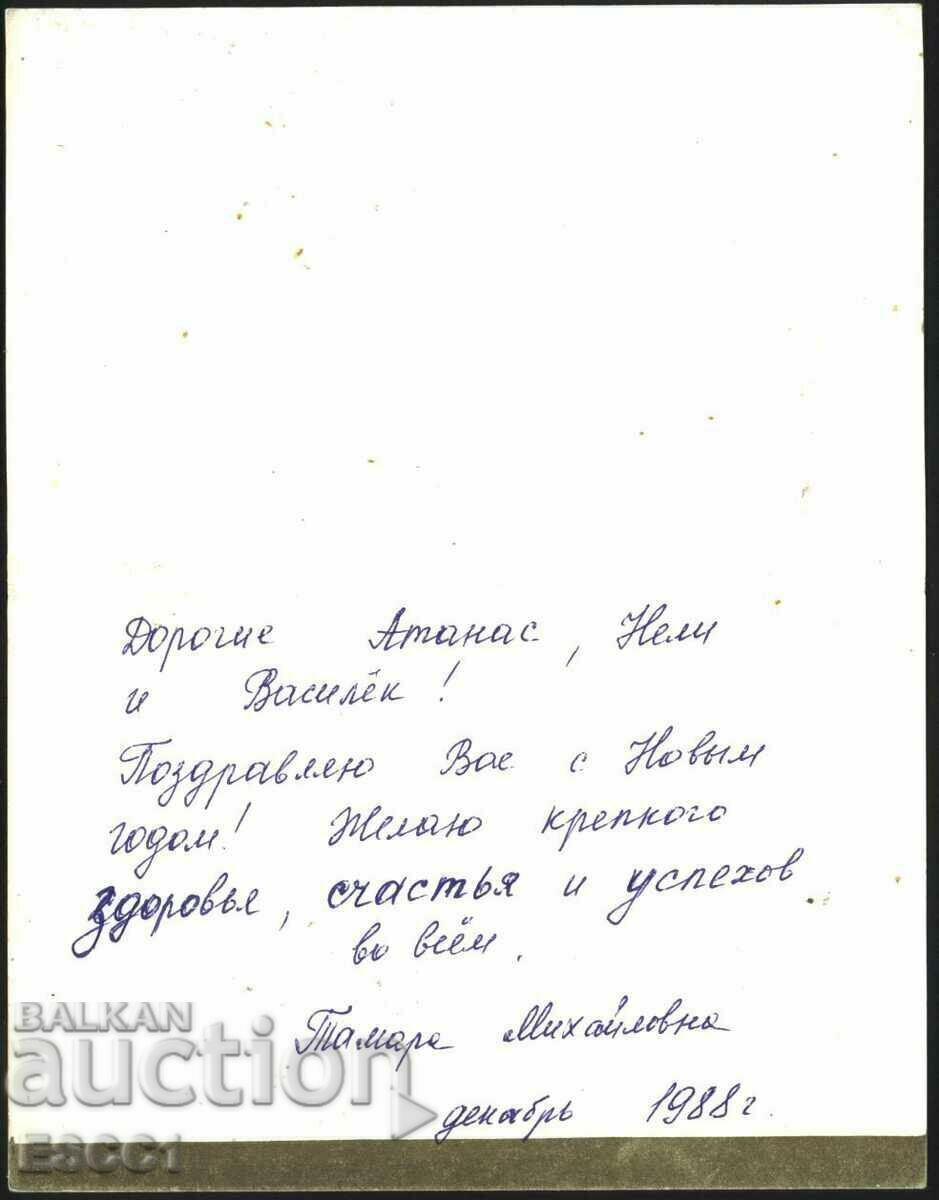 Дорогие Атанас, Нели
и Василёк!
Поздравляю Вас с Новым
годом! Желаю крепкого
здоровья, счастья и успехов
во всём.
Тамара Михайловна
декабрь 1988 г.
BALKAN
auction
E3CC1